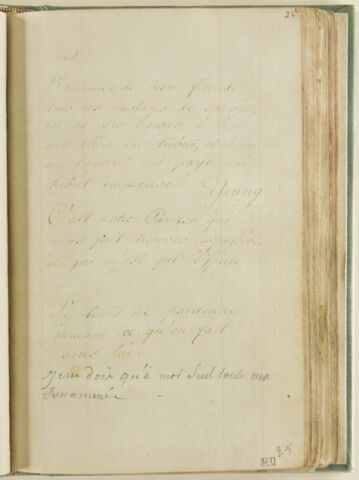 24
L'homme de bien
tous les instans de sa vie,
ses heures il leve
sur elles un tribut, et chacune
en fuyant lui paye un
tribut immense. Young
C'est notre Paresse qui
nous fait trouver impossible
ce qui n'est que difficile
Le tems ne pardonne
jamais ce qu'on fait
sans lui.
Je ne dois qu'à moi Seul toute ma
Renommée
25